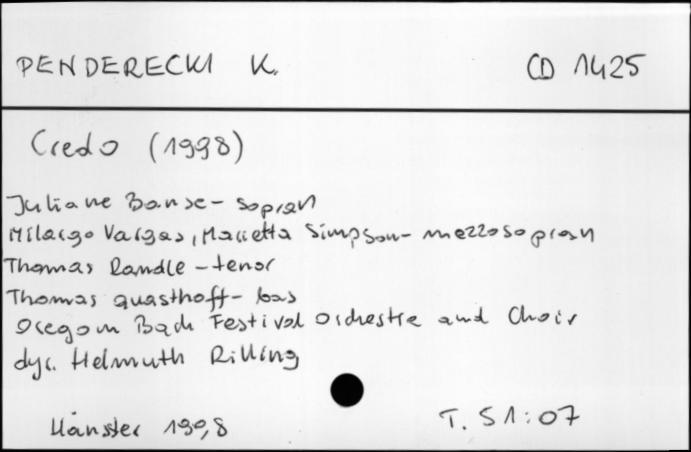 PENDERECKI K. CD 1425
Credo (1998)
Juliane Banse - sopran
Milargo Vargas, Marietta Simpson - mezzosopran
Thomas Randle - tenor
Thomas Quasthoff - bas
Oregom Bach Festival Orchestre and Choir
dyr. Helmuth Rilling
Hänssler 1998 T. 51:07